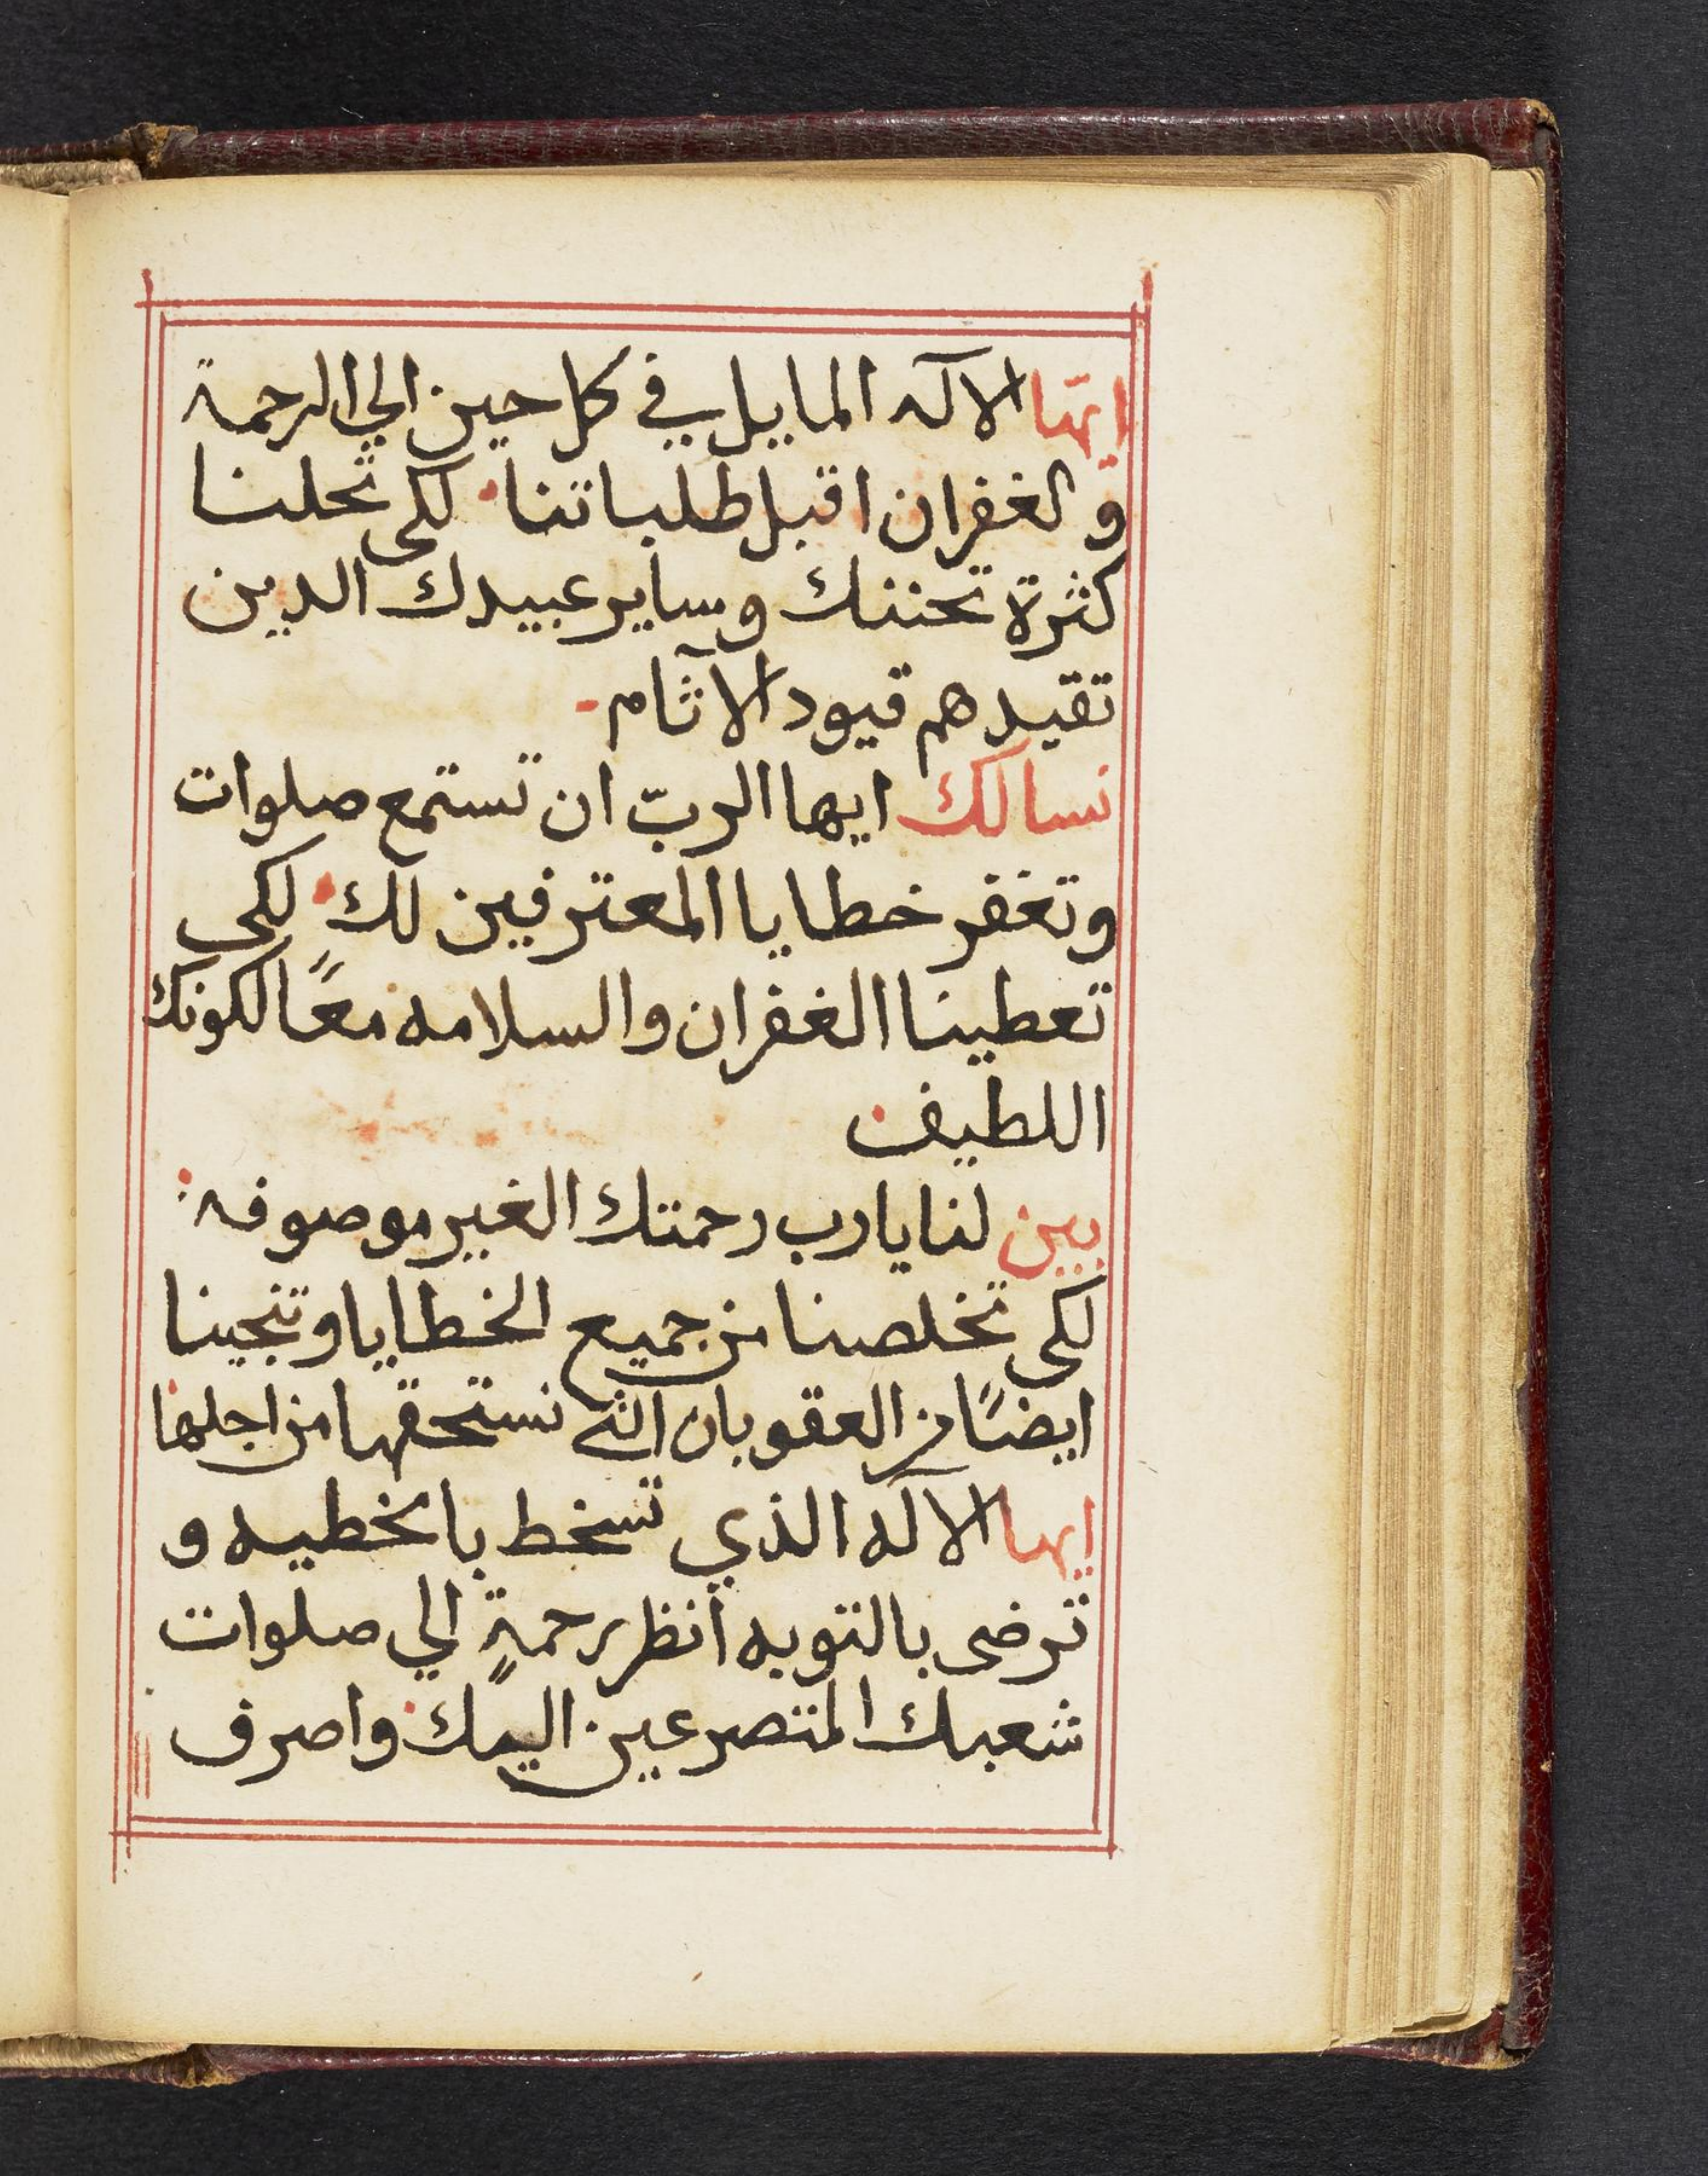 ايها الآله المايل في كل حين الي الرحمة
والغفران اقبل طلباتنا· لكى تحلنا
كثرة تحننك وساير عبيدك الدين
تقيدهم قيود الآثام-
نسالك ايها الربّ ان تستمع صلوات
وتغفر خطايا المعترفين لك· لكي
تعطينا الغفران والسلامه معًا لكونك
اللطيف
بين لنا يارب رحمتك الغير موصوفه:
لكى تخلصنا من جميع الخطايا وتنجينا
ايضًا من العقوبات التى نستحقها من اجلها
ايها الآله الذي تسخط بالخطيه و
ترضى بالتوبه أنظر برحمةٍ الي صلوات
شعبك المتضرعين اليك واصرف